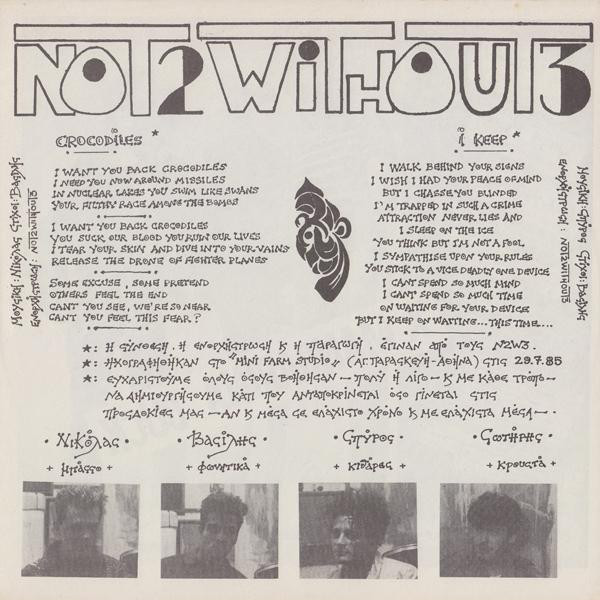 NOT2WITHOUT3
CROCODILES *
I WANT YOU BACK CROCODILES
I NEED YOU NOW AROUND MISSILES
IN NUCLEAR LAKES YOU SWIM LIKE SWANS
YOUR FILTHY RACE AMONG THE BOMBS
I WANT YOU BACK CROCODILES
YOU SUCK OUR BLOOD YOU RUIN OUR LIVES
I TEAR YOUR SKIN AND DIVE INTO YOUR VAINS
RELEASE THE DRONE OF FIGHTER PLANES
SOME EXCUSE, SOME PRETEND
OTHERS FEEL THE END
CANT YOU SEE, WE'RE SO NEAR
CANT YOU FEEL THIS FEAR?
ΜΟΥΣΙΚΗ: ΝΙΚΟΛΑΣ ΣΤΙΧΟΙ: ΒΑΣΙΛΗΣ
ΕΝΟΡΧΗΣΤΡΩΣΗ: NOT2WITHOUT3
I KEEP *
I WALK BEHIND YOUR SIGNS
I WISH I HAD YOUR PEACE OF MIND
BUT I CHASSE YOU BLINDED
I'M TRAPPED IN SUCH A CRIME
ATTRACTION NEVER LIES AND
I SLEEP ON THE ICE
YOU THINK BUT I'M NOT A FOOL
I SYMPATHISE UPON YOUR RULES
YOU STICK TO A VICE DEADLY ONE DEVICE
I CANT SPEND SO MUCH MIND
I CANT SPEND SO MUCH TIME
ON WAITING FOR YOUR DEVICE
BUT I KEEP ON WAITING...THIS TIME....
ΜΟΥΣΙΚΗ: ΣΠΥΡΟΣ ΣΤΙΧΟΙ: ΒΑΣΙΛΗΣ
ΕΝΟΡΧΗΣΤΡΩΣΗ: NOT2WITHOUT3
*: Η ΣΥΝΘΕΣΗ, Η ΕΝΟΡΧΗΣΤΡΩΣΗ Κ Η ΠΑΡΑΓΩΓΗ, ΕΓΙΝΑΝ ΑΠΟ ΤΟΥΣ N2W3.
*: ΗΧΟΓΡΑΦΗΘΗΚΑΝ ΣΤΟ "MINI FARM STUDIO" (ΑΓ. ΠΑΡΑΣΚΕΥΗ-ΑΘΗΝΑ) ΣΤΙΣ 29.7.85
*: ΕΥΧΑΡΙΣΤΟΥΜΕ ΟΛΟΥΣ ΟΣΟΥΣ ΒΟΗΘΗΣΑΝ — ΠΟΛΥ Η ΛΙΓΟ — Κ ΜΕ ΚΑΘΕ ΤΡΟΠΟ —
ΝΑ ΔΗΜΙΟΥΡΓΗΣΟΥΜΕ ΚΑΤΙ ΠΟΥ ΑΝΤΑΠΟΚΡΙΝΕΤΑΙ ΟΣΟ ΓΙΝΕΤΑΙ ΣΤΙΣ
ΠΡΟΣΔΟΚΙΕΣ ΜΑΣ — ΑΝ Κ ΜΕΣΑ ΣΕ ΕΛΑΧΙΣΤΟ ΧΡΟΝΟ Κ ΜΕ ΕΛΑΧΙΣΤΑ ΜΕΣΑ —.
· ΝΙΚΟΛΑΣ · · ΒΑΣΙΛΗΣ · · ΣΠΥΡΟΣ · · ΣΩΤΗΡΗΣ ·
+ ΜΠΑΣΣΟ + + ΦΩΝΗΤΙΚΑ + + ΚΙΘΑΡΕΣ + + ΚΡΟΥΣΤΑ +